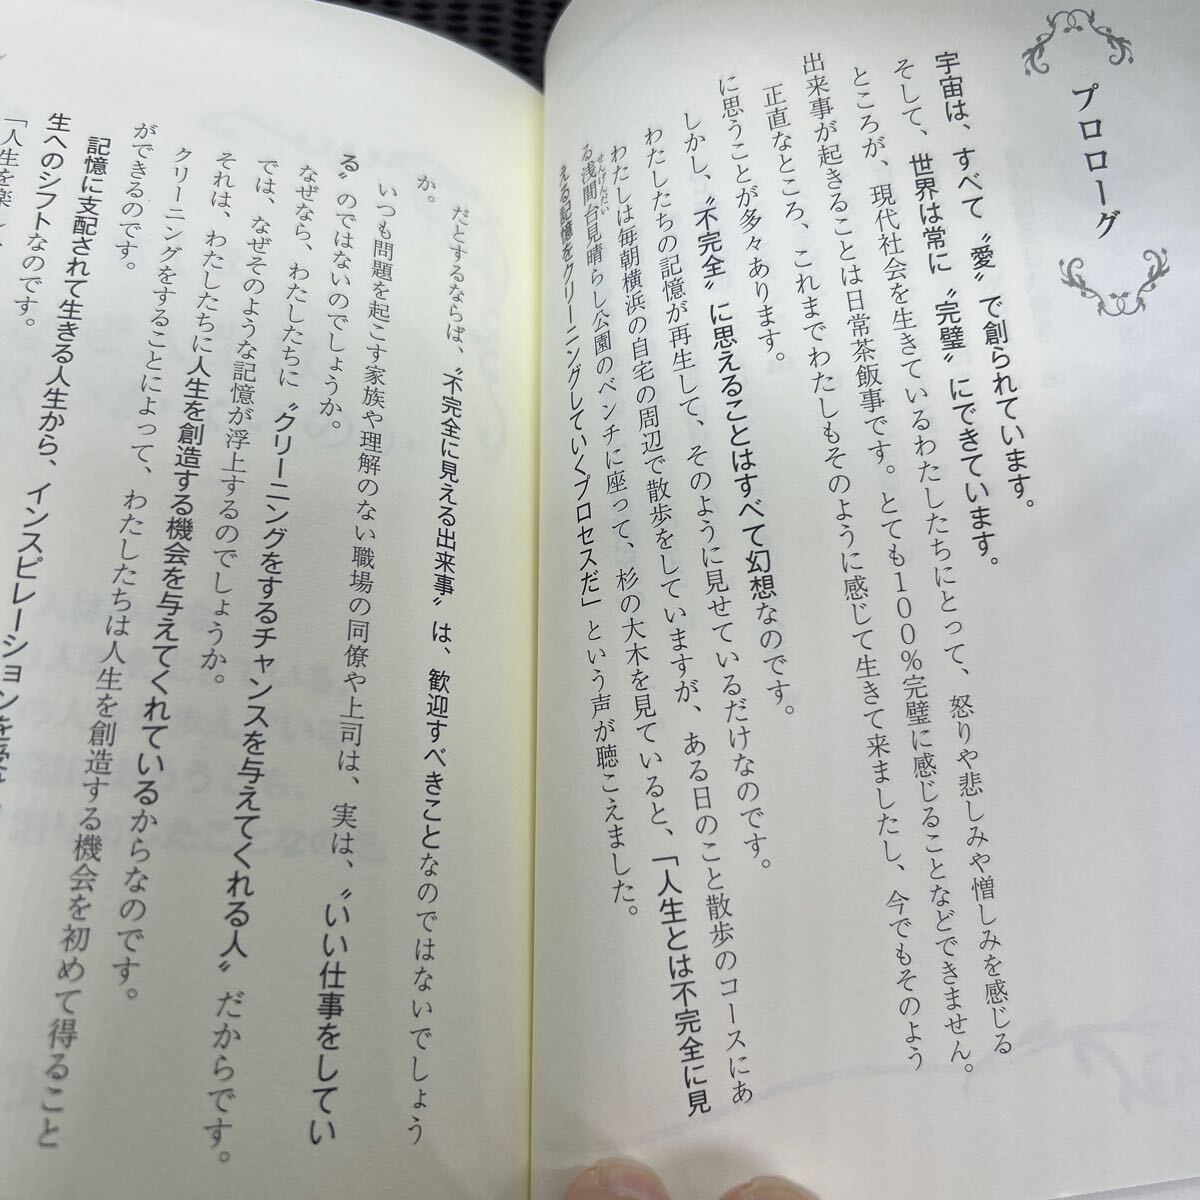 プロローグ
宇宙は、すべて〝愛〟で創られています。
そして、世界は常に〝完璧〟にできています。
ところが、現代社会を生きているわたしたちにとって、怒りや悲しみや憎しみを感じる
出来事が起きることは日常茶飯事です。とても100％完璧に感じることなどできません。
正直なところ、これまでわたしもそのように感じて生きて来ましたし、今でもそのよう
に思うことが多々あります。
しかし、〝不完全〟に思えることはすべて幻想なのです。
わたしたちの記憶が再生して、そのように見せているだけなのです。
わたしは毎朝横浜の自宅の周辺で散歩をしていますが、ある日のこと散歩のコースにあ
る浅間台見晴らし公園のベンチに座って、杉の大木を見ていると、「人生とは不完全に見
せんげんだい
える記憶をクリーニングしていくプロセスだ」という声が聴こえました。
だとするならば、〝不完全に見える出来事〟は、歓迎すべきことなのではないでしょう
か。
いつも問題を起こす家族や理解のない職場の同僚や上司は、実は、〝いい仕事をしてい
る〟のではないのでしょうか。
なぜなら、わたしたちに〝クリーニングをするチャンスを与えてくれる人〟だからです。
では、なぜそのような記憶が浮上するのでしょうか。
それは、わたしたちに人生を創造する機会を与えてくれているからなのです。
クリーニングをすることによって、わたしたちは人生を創造する機会を初めて得ること
ができるのです。
記憶に支配されて生きる人生から、インスピレーションを
生へのシフトなのです。
「人生を楽し